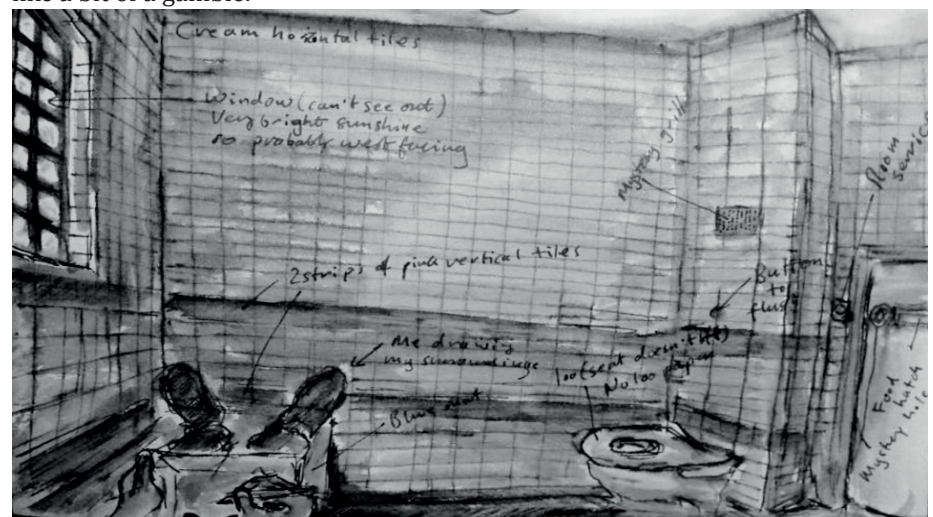 like a bit of a gamble.
Cream horizontal tiles
Window (can't see out)
Very bright sunshine
so probably west facing
Mystery grill
Room
service
2 strips of pink vertical tiles
Button
to
flush
Me drawing
my surroundings
loo (seat doesn't lift)
No loo paper
Blue mat
Food
hatch
Mystery hole